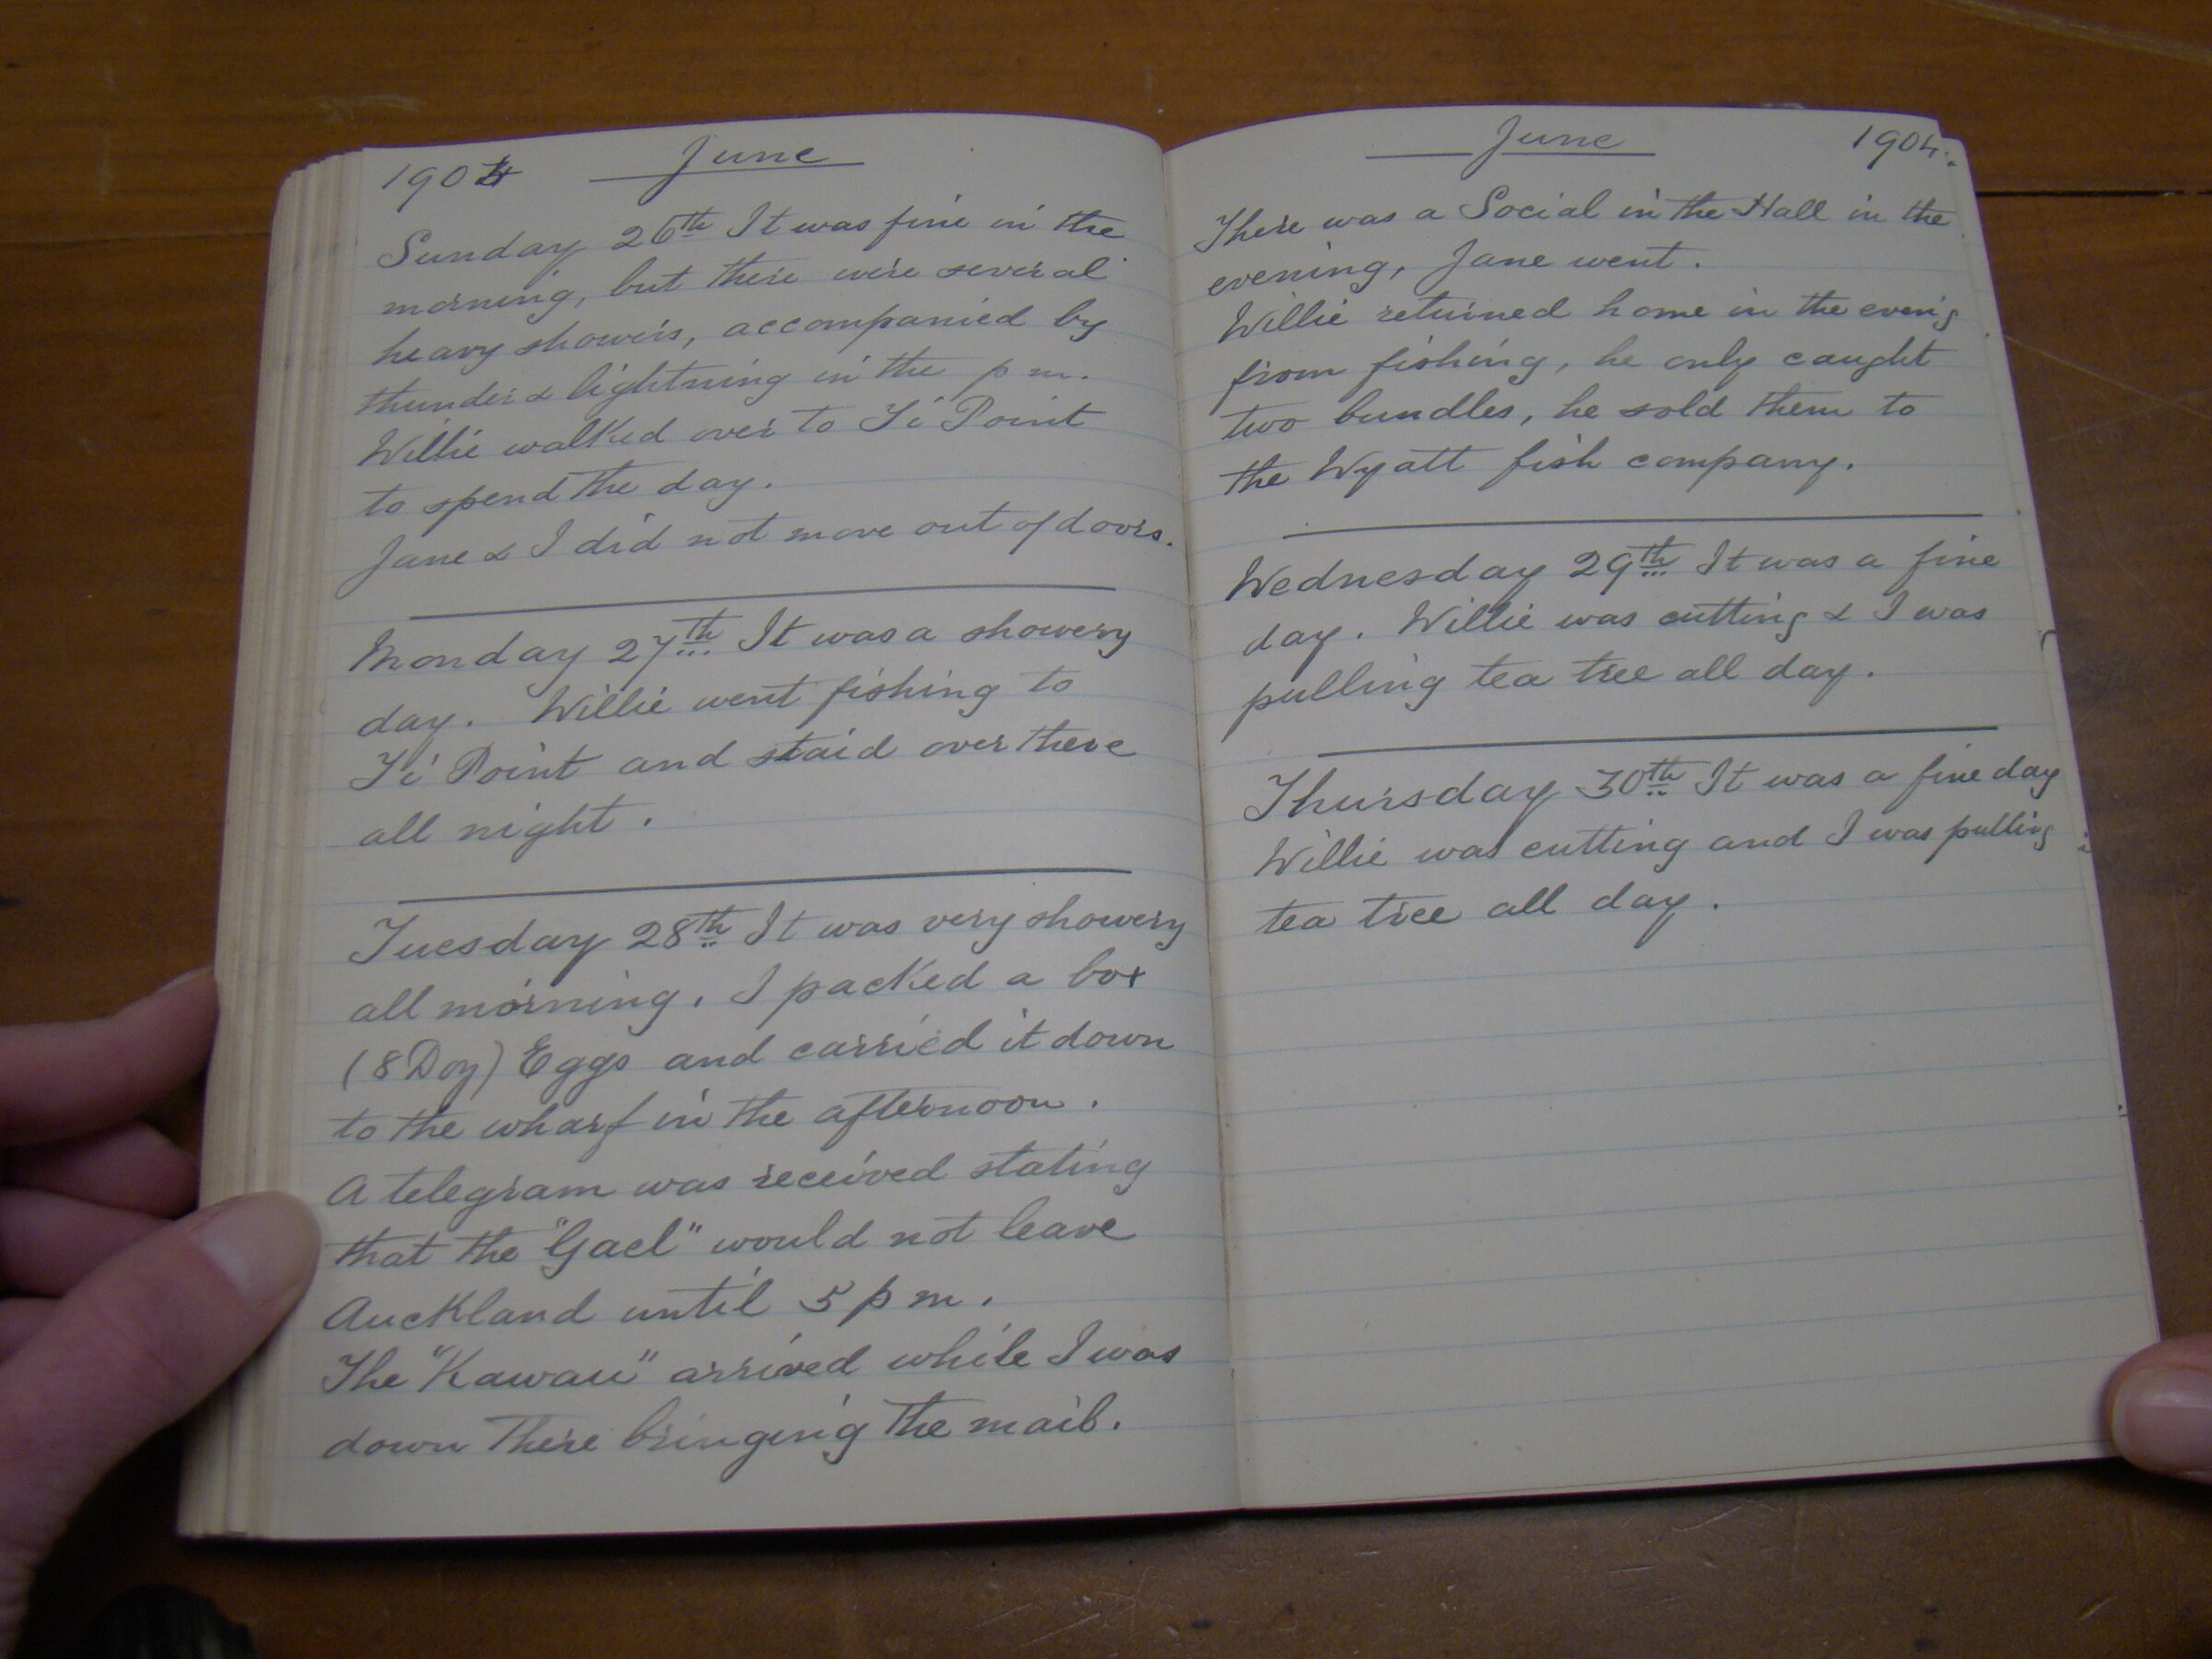 1904 June
Sunday 26th It was fine in the
morning, but there were several
heavy showers, accompanied by
thunder & lightning in the p m.
Willie walked over to Ti Point
to spend the day.
Jane & I did not move out of doors.
Monday 27th It was a showery
day. Willie went fishing to
Ti Point and staid over there
all night.
Tuesday 28th It was very showery
all morning. I packed a box
(8 Doz) Eggs and carried it down
to the wharf in the afternoon.
A telegram was received stating
that the "Gael" would not leave
Auckland until 5 p m.
The "Kawau" arrived while I was
down there bringing the mail.
June 1904.
There was a Social in the Hall in the
evening, Jane went.
Willie returned home in the eveng
from fishing, he only caught
two bundles, he sold them to
the Wyatt fish company.
Wednesday 29th It was a fine
day. Willie was cutting & I was
pulling tea tree all day.
Thursday 30th It was a fine day
Willie was cutting and I was pulling
tea tree all day.